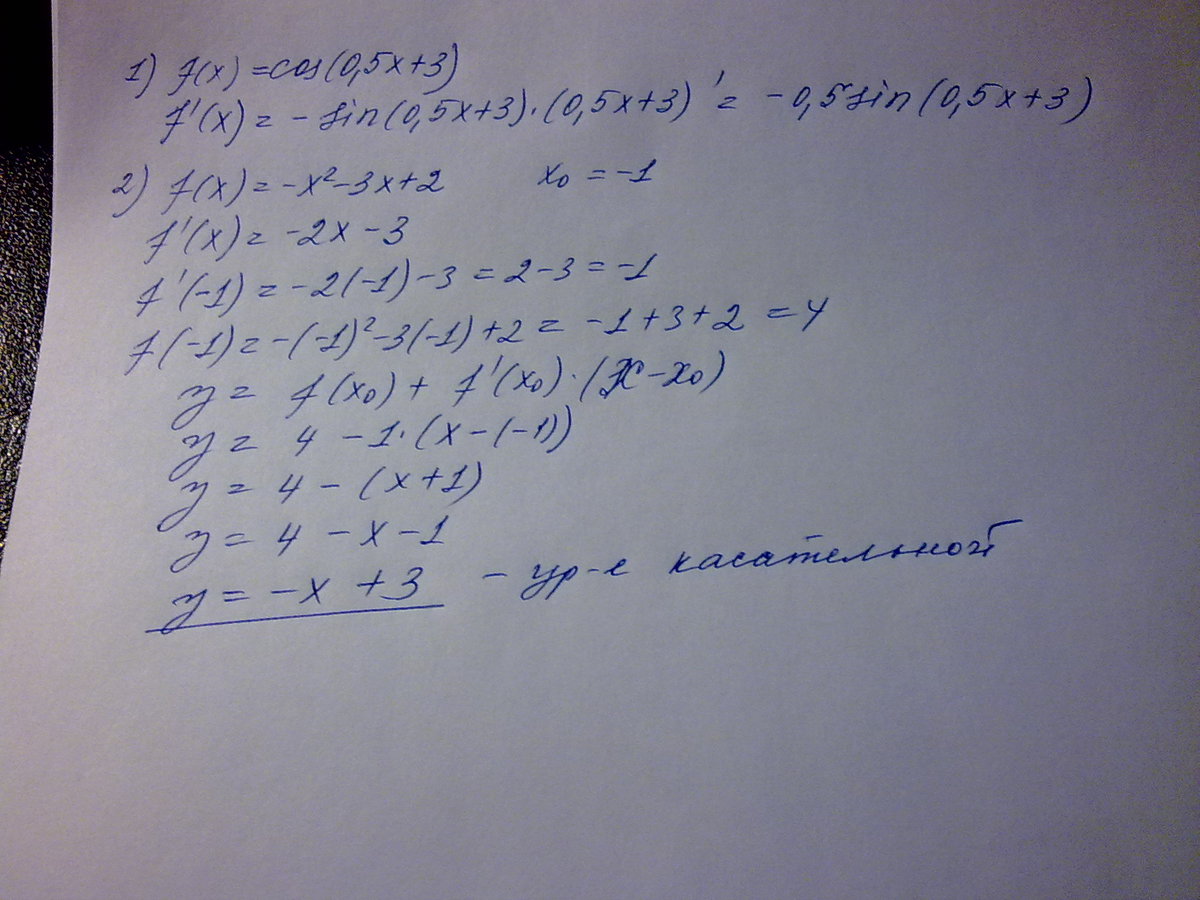 1) f(x) = cos(0,5x+3)
f'(x) = - sin(0,5x+3)·(0,5x+3)' = -0,5 sin(0,5x+3)
2) f(x) = -x²-3x+2 x₀ = -1
f'(x) = -2x-3
f'(-1) = -2(-1)-3 = 2-3 = -1
f(-1) = -(-1)²-3(-1)+2 = -1+3+2 = 4
y = f(x₀) + f'(x₀)·(x-x₀)
y = 4 -1·(x-(-1))
y = 4 - (x+1)
y = 4 - x - 1
y = -x +3 - ур-е касательной